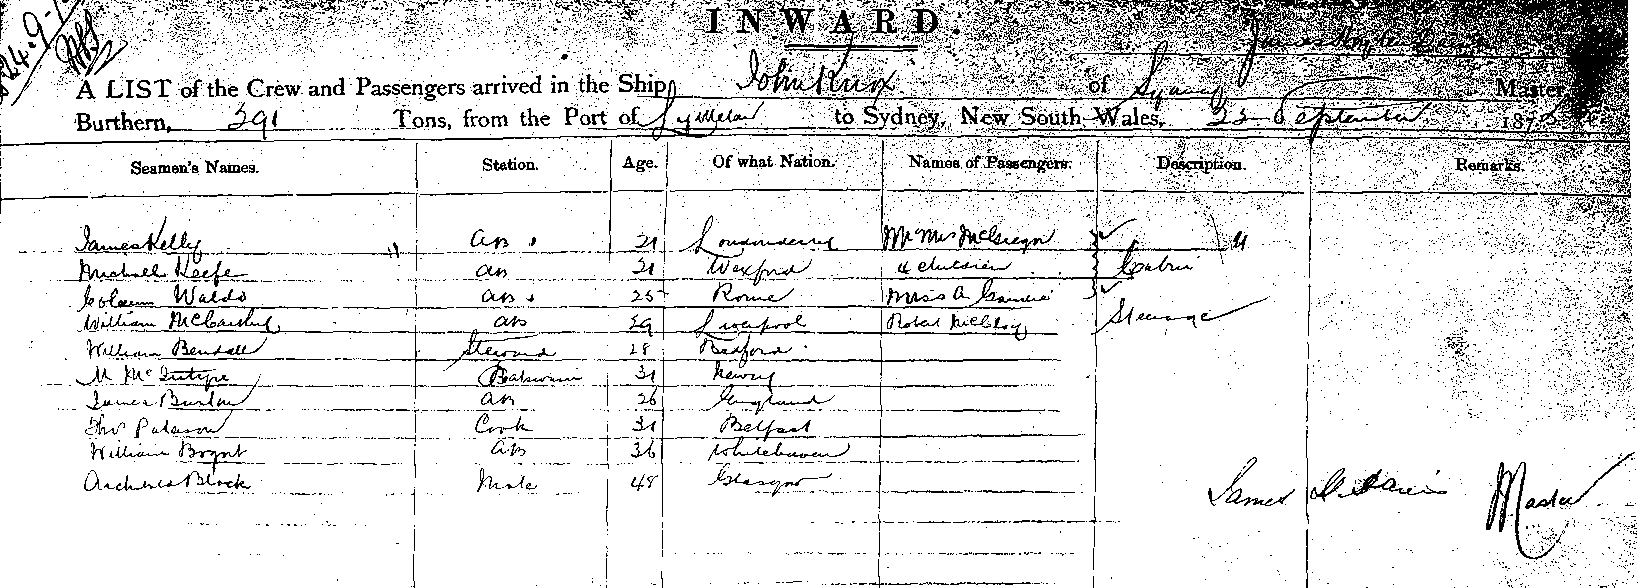 INWARD.
A LIST of the Crew and Passengers arrived in the Ship John Knox of Sydney Master
Burthern, 391 Tons, from the Port of to Sydney, New South Wales, 23 September 187
Seamen's Names. Station. Age. Of what Nation. Names of Passengers. Description. Remarks.
James Kelly AB 21 Londonderry Mr Mrs McGregor
Michael Keefe AB 21 Wexford & children Cabin
Waldo AB 25 Rome Miss A
William McCarthy AB 29 Liverpool Robert McElroy Steerage
William Bendall Steward 28 Bedford
M McIntyre Boatswain 31 Newry
James Burton AB 26 England
Thos Paterson Cook 31 Belfast
William AB 36 Whitehaven
Archibald Black Mate 48 Glasgow
James Master